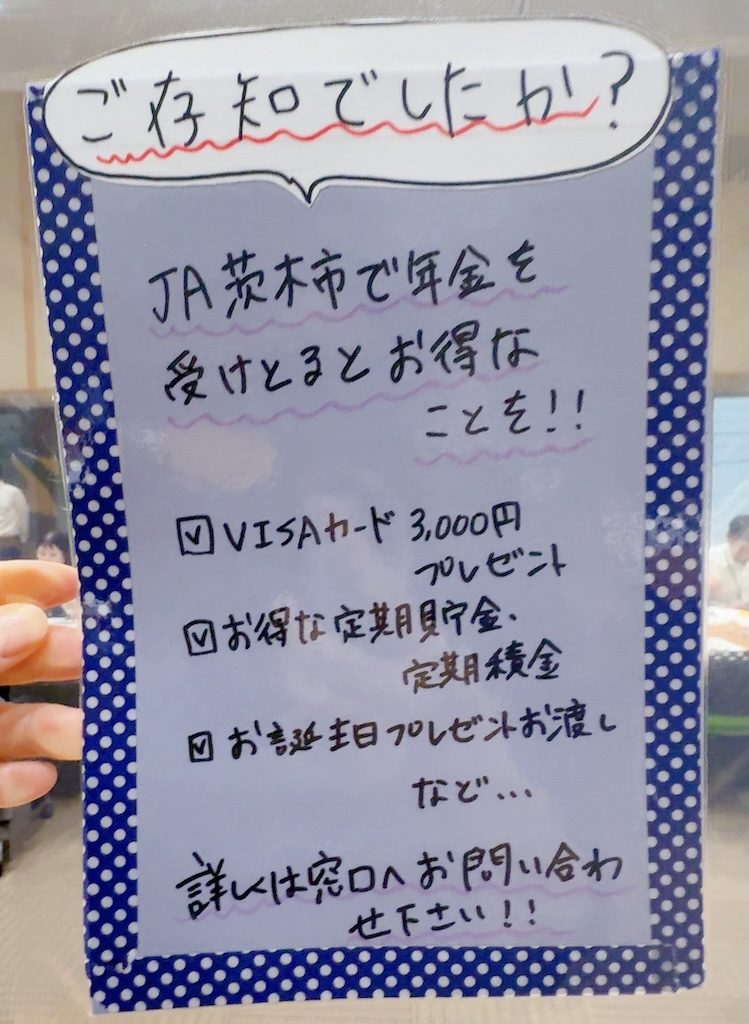 ご存知でしたか?
JA茨木市で年金を
受けとるとお得な
ことを!!
☑VISAカード 3,000円
プレゼント
☑お得な定期貯金、
定期積金
☑お誕生日プレゼントお渡し
など...
詳しくは窓口へお問い合わ
せ下さい!!